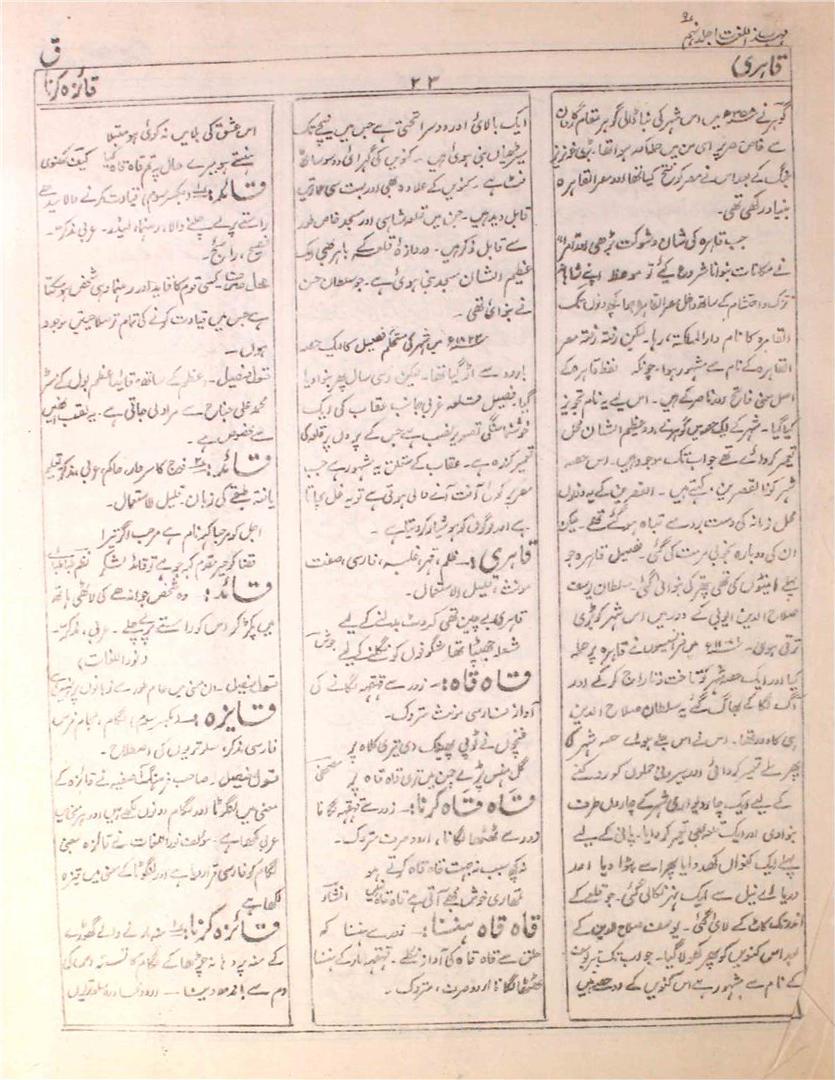 مہذب اللغات جلد نہم
ق
قاہری
۲۳
قائزہ کرنا
گوہر نے میں اس شہر کی بنا ڈالی گوہر مقام
جنگ کے بعد اس نے مصر کو فتح کیا تھا اور معر القاہرہ
بنیاد رکھی تھی۔
جب قاہرہ کی شان و شوکت بڑھی اور امراء
نے مکانات بنوانا شروع کیے تو معز اپنے شاہانہ
تزک و احتشام کے ساتھ داخل معر القاہرہ ہوا کچھ دنوں تک
القاہرہ کا نام دار المملکتہ، رہا۔ لیکن رفتہ رفتہ معر
القاہرہ کے نام سے مشہور ہوا، چونکہ لفظ قاہرہ کے
اصل معنی فاتح اور ناصر کے ہیں۔ اس لیے یہ نام تجویز
کیا گیا۔ شہر کے ایک حصہ میں گوہر نے دو عظیم الشان محل
تعمیر کروائے تھے جو اب تک موجود ہیں۔ اس حصہ
شہر کو القصرین کہتے ہیں۔ القصرین کے یہ دونوں
محل زمانہ کی دست برد سے تباہ ہو گئے تھے۔ لیکن
ان کی دوبارہ بخوبی مرمت کی گئی۔ فصیل قاہرہ جو
پہلے اینٹوں کی تھی پتھر کی بنوائی گئی۔ سلطان یوسف
صلاح الدین ایوبی کے دور میں اس شہر کو بڑی
ترقی ہوئی۔ میں فرانسیسیوں نے قاہرہ پر حملہ
کیا اور ایک حصہ شہر کو تاخت و تاراج کر کے اور
آگ لگا کے بھاگ گئے یہ سلطان صلاح الدین
ہی کا دور تھا۔ اس نے اس جلے ہوئے حصہ شہر کو
پھر سے تعمیر کروائی اور بیرونی حملوں کو روکنے
کے لیے ایک چار دیواری شہر کے چاروں طرف
بنوا دی اور ایک قلعہ بھی تعمیر کروایا۔ پانی کے لیے
پہلے ایک کنواں کھدوایا پھر اسے پٹوا دیا اور
دریائے نیل سے ایک نہر نکالی گئی۔ جو قلعے کے
اندر تک کاٹ کے لائی گئی۔ یوسف صلاح الدین کے
بعد اس کنویں کو پھر کھولا گیا۔ جو اب تک بیر یوسف
کے نام سے مشہور ہے اس کنویں کے دو حصے ہیں
ایک بالائی اور دوسرا تحتی ہے جس میں نیچے تک
سیڑھیاں بنی ہوئی ہیں۔ کنویں کی گہرائی دو سو ساٹھ
فٹ ہے۔ کنویں کے علاوہ بھی اور بہت سی عمارتیں
قابل دید ہیں۔ جن میں قلعہ شاہی اور مسجد خاص طور
سے قابل ذکر ہیں۔ دروازۂ قلعہ کے باہر بھی ایک
عظیم الشان مسجد بنی ہوئی ہے۔ جو سلطان حسن
نے بنوائی تھی۔
۱۸۲۳ء میں شہر کی مستحکم فصیل کا ایک حصہ
بارود سے اڑ گیا تھا۔ لیکن اسی سال پھر بنوا دیا
گیا۔ فصیل قلعہ غربی جانب عقاب کی ایک
خوشنما سنگی تصویر نصب ہے جس کے پروں پر قلعہ کی
تحریر کندہ ہے۔ عقاب کے متعلق یہ مشہور ہے جب
مصر پر کوئی آفت آنے والی ہوتی ہے تو یہ غل مچاتا
ہے اور لوگوں کو ہوشیار کر دیتا ہے۔
قاہری:۔ ظلم، قہر، غلبہ، فارسی، صفت
مونث، قلیل الاستعمال۔
قاہری بے چین تھی کروٹ بدلنے کے لیے
شعلہ جھپٹا تھا شگوفوں کو نگلنے کے لیے جوش
قاہ قاہ:۔ زور سے قہقہہ لگانے کی
آواز فارسی مونث متروک۔
غنچوں نے ٹوپی پھینک دی تیری کلاہ پر
گل ہنس پڑے چمن میں تری قاہ قاہ پر مصحفی
قاہ قاہ کرنا:۔ زور سے قہقہہ لگانا
زور سے ٹھٹھا لگانا، اردو صرف متروک۔
نہ کچھ سبب نہ جہت قاہ قاہ کرتے ہو
تمہاری خوش مجھے آتی ہے قاہ قاہ نہیں انشا
قاہ قاہ ہنسنا:۔ زور سے ہنسنا کہ
حلق سے قاہ قاہ کی آواز نکلے۔ قہقہہ مار کے ہنسنا
ٹھٹھا لگانا اردو صرف، متروک۔
اس عشق کی بلا میں نہ کوئی ہو مبتلا
ہنستے ہو میرے حال پر تم قاہ قاہ کیا کیف لکھنوی
قائد:۔ (بکسر سوم)، قیادت کرنے والا سیدھے
راستے پر لے چلنے والا، رہنما، لیڈر۔ عربی مذکر۔
فصیح، رائج۔
محل صرف۔ کسی قوم کا قاید اور رہنما وہی شخص ہو سکتا
ہے جس میں قیادت کرنے کی تمام تر صلاحیتیں موجود
ہوں۔
قول فیصل۔ اعظم کے ساتھ، قائد اعظم بول کے مسٹر
محمد علی جناح سے مراد لی جاتی ہے۔ یہ لقب انھیں
سے مخصوص ہے۔
قائد:۔ فوج کا سردار، حاکم، عربی، مذکر تعلیم
یافتہ طبقے کی زبان، قلیل الاستعمال۔
اجل کو مرحبا کہہ نام ہے مرحب اگر تیرا
قضا کو خیر مقدم کہہ جو ہے تو قائد لشکر نظم طباطبائی
قائد:۔ وہ شخص جو اندھے کی لاٹھی ہاتھ
میں پکڑ کر اس کو راستے پر لے چلے۔ عربی، مذکر۔
(نور اللغات)
قول فیصل۔ ان معنی میں عام طور سے زبانوں پر نہیں ہے
قایزہ:۔ (بکسر سوم)، لگام، لجام فرس
فارسی مذکر، سلوتریوں کی اصطلاح۔
قول فیصل۔ صاحب فرہنگ آصفیہ نے قائزہ کے
معنی میں لنگوٹا اور لگام دونوں لکھے ہیں اور ہر معنی میں
عربی لکھا ہے۔ مولف نور اللغات نے قائزہ بمعنی
لگام کو فارسی قرار دیا ہے اور لنگوٹا کے معنی میں
لکھا ہے
قائزہ کرنا:۔ نہار نے والے گھوڑے
کے منہ پر دہانہ چڑھا کے لگام کا تسمہ اس کی
دم سے باندھ دینا۔ اردو محاورہ سلوتریوں